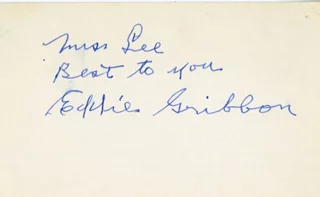 Miss Lee
Best to you
Eddie Gribbon